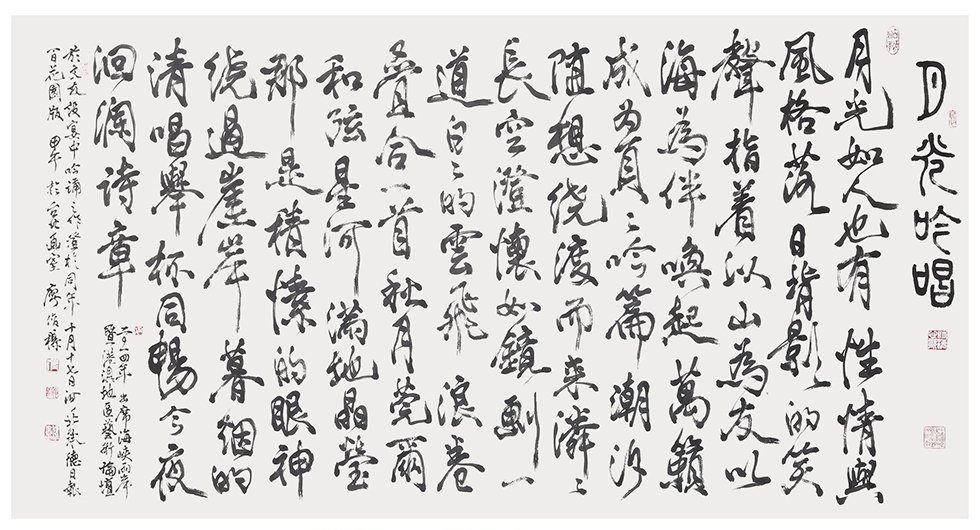 月光吟唱
月光如人也有 性情與
風格 落日背影的笑
聲指着以山為友以
海為伴喚起萬籟
成為頁〻吟篇 潮汐
隨想繞渡而来潾〻
長空澄懷如鏡 劃一
道白〻的雲飛 浪卷
疊合一首秋月莞爾
和弦星河滿地晶瑩
那是積愫的眼神
繞過崖岸 暮烟的
清唱舉杯同暢今夜
洄瀾詩章
二〇一四年出席海峽兩岸
暨港澳地區藝術論壇
於文友设宴中吟誦之作 於同年十月十七日河北承德日報
百花園版 甲午於 画室